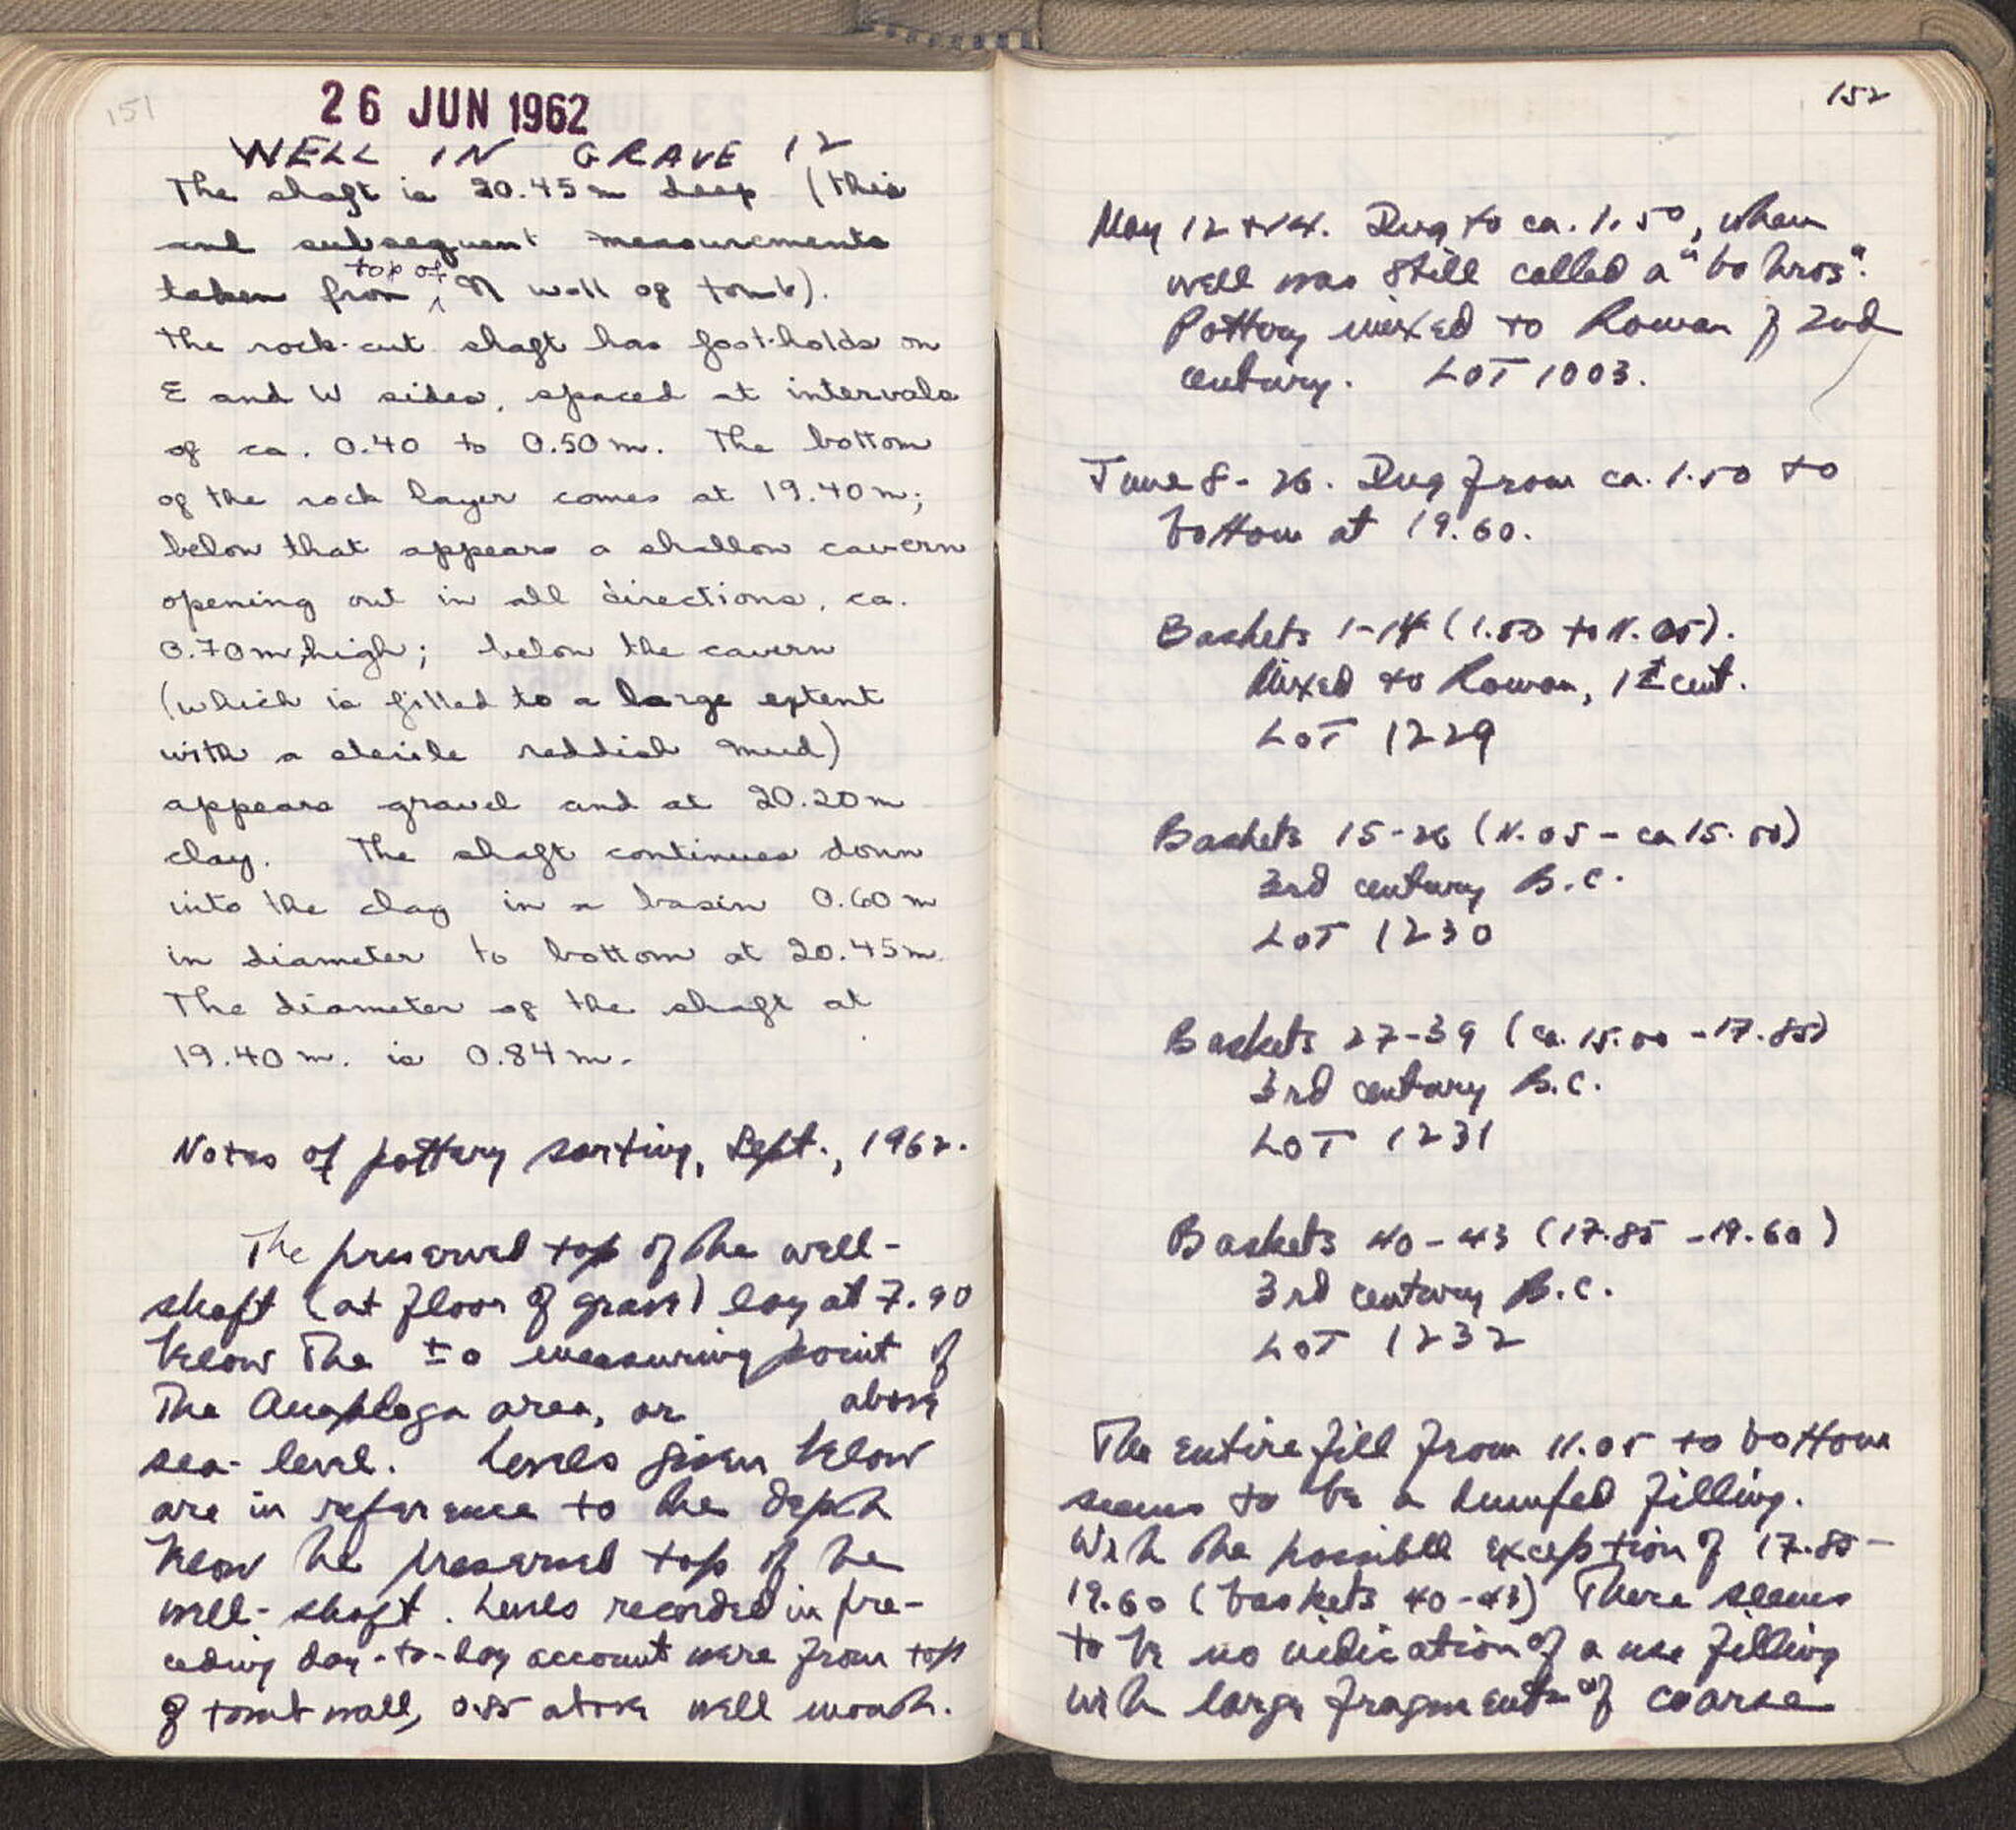 151
26 JUN 1962
WELL IN GRAVE 12
The shaft is 20.45m deep (this
and subsequent measurements
taken from top of N wall of tomb).
The rock-cut shaft has foot-holds on
E and W sides, spaced at intervals
of ca. 0.40 to 0.50m. The bottom
of the rock layer comes at 19.40m;
below that appears a shallow cavern
opening out in all directions, ca.
0.70m high; below the cavern
(which is filled to a large extent
with a sterile reddish mud)
appears gravel and at 20.20m
clay. The shaft continues down
into the clay in a basin 0.60m
in diameter to bottom at 20.45m.
The diameter of the shaft at
19.40m. is 0.84m.
Notes of pottery sorting, Sept., 1962.
The preserved top of the well-
shaft (at floor of grave) lay at 7.90
below the ±0 measuring point of
The Anaploga area, or above
sea-level. Levels given below
are in reference to the depth
below the preserved top of the
well-shaft. Levels recorded in pre-
ceding day-to-day account were from top
of tomb wall, 0.85 above well mouth.
152
May 12 + 14. Dug to ca. 1.50, when
well was still called a "bothros".
Pottery mixed to Roman of 2nd
century. LOT 1003.
June 8-26. Dug from ca. 1.50 to
bottom at 19.60.
Baskets 1-14 (1.50 to 11.05).
Mixed to Roman, 1st cent.
LOT 1229
Baskets 15-26 (11.05 - ca 15.00)
3rd century B.C.
LOT 1230
Baskets 27-39 (ca. 15.00 - 17.85)
3rd century B.C.
LOT 1231
Baskets 40-43 (17.85 - 19.60)
3rd century B.C.
LOT 1232
The entire fill from 11.05 to bottom
seems to be a dumped filling.
With the possible exception of 17.85-
19.60 (baskets 40-43) There seems
to be no indication of a use filling
with large fragments of coarse